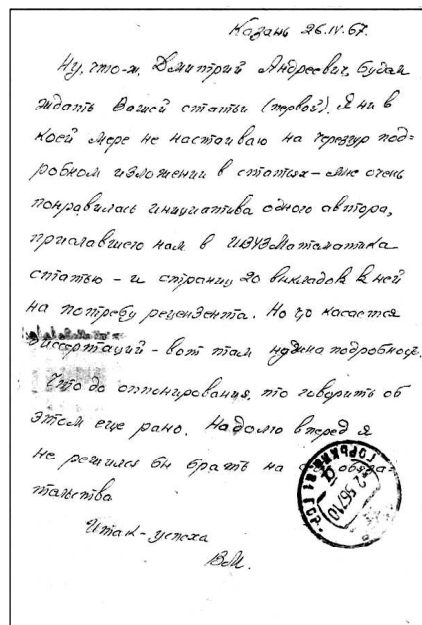 Казань 26.IV.67.
Ну, что-ж, Дмитрий Андреевич, будем
ждать Вашей статьи (первой). Я ни в
коей мере не настаиваю на черезчур под=
робном изложении в статьях – мне очень
понравилась инициатива одного автора,
приславшего нам в ИВУЗМатематика
статью – и страниц 20 выкладок к ней
на потребу рецензента. Но что касается
диссертаций – вот там нужна подробность.
Что до оппонирования, то говорить об
этом еще рано. Надолго вперед я
не решился бы брать на себя обяза
тельства
Итак – успеха
ВМ.
ГОРЬКИЙ